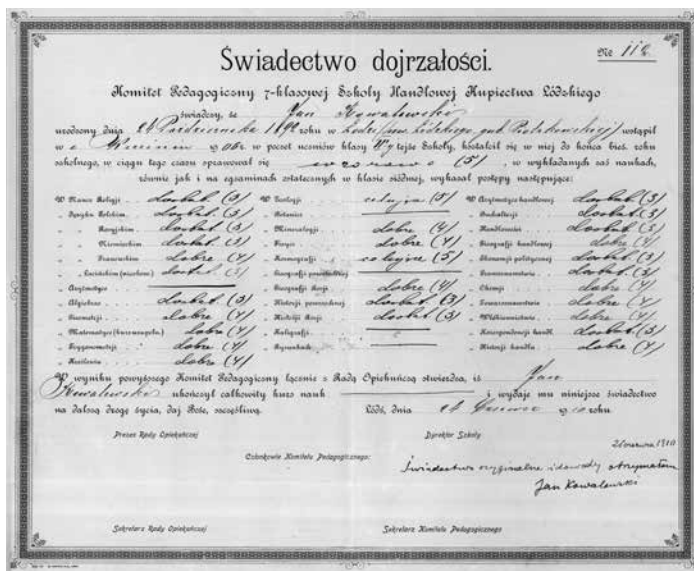 Nr 112
Świadectwo dojrzałości.
Komitet Pedagogiczny 7-klasowej Szkoły Handlowej Kupiectwa Łódzkiego
świadczy, że Jan Kowalewski
urodzony dnia 24 Października 1892 roku w Łodzi (pow. Łódzkiego, gub. Piotrkowskiej) wstąpił
w 1906 r. w poczet uczniów klasy tejże Szkoły, kształcił się w niej do końca bież. roku
szkolnego, w ciągu tego czasu sprawował się wzorowo (5), w wykładanych zaś naukach,
równie jak i na egzaminach ostatecznych w klasie siódmej, wykazał postępy następujące:
W Nauce Religji dostat. (3)
„ Języku Polskim dostat. (3)
„ „ Rosyjskim dostat. (3)
„ „ Niemieckim dostat. (3)
„ „ Francuskim dobre (4)
„ „ Łacińskim dostat. (3)
„ Arytmetyce
„ Algebrze dostat. (3)
„ Geometrji dobre (4)
„ Matematyce dobre (4)
„ Trygonometrji dobre (4)
„ Kreśleniu dobre (4)
W Zoologji celujące (5)
„ Botanice
„ Mineralogji dobre (4)
„ Fizyce dobre (4)
„ Kosmografji celujące (5)
„ Geografji powszechnej
„ Geografji Rosji dobre (4)
„ Historji powszechnej dostat. (3)
„ Historji Rosji dostat. (3)
„ Kaligrafji
„ Rysunkach
W Arytmetyce handlowej dostat. (3)
„ Buchalterji dostat. (3)
„ Handlowości dostat. (3)
„ Geografji handlowej dobre (4)
„ Ekonomji politycznej dostat. (3)
„ Prawoznawstwie dostat. (3)
„ Chemji dobre (4)
„ Towaroznawstwie dobre (4)
„ Włókiennictwie dobre (4)
„ Korespondencji handl. dostat. (3)
„ Historji handlu dobre (4)
W wyniku powyższego Komitet Pedagogiczny łącznie z Radą Opiekuńczą stwierdza, iż Jan
Kowalewski ukończył całkowity kurs nauk i wydaje mu niniejsze świadectwo
na dalszą drogę życia, daj Boże, szczęśliwą. Łódź, dnia 14 Czerwca 1910 roku.
Prezes Rady Opiekuńczej
Dyrektor Szkoły
Członkowie Komitetu Pedagogicznego:
21 czerwca 1910
Świadectwo oryginalne i dowody otrzymałem
Jan Kowalewski
Sekretarz Rady Opiekuńczej
Sekretarz Komitetu Pedagogicznego